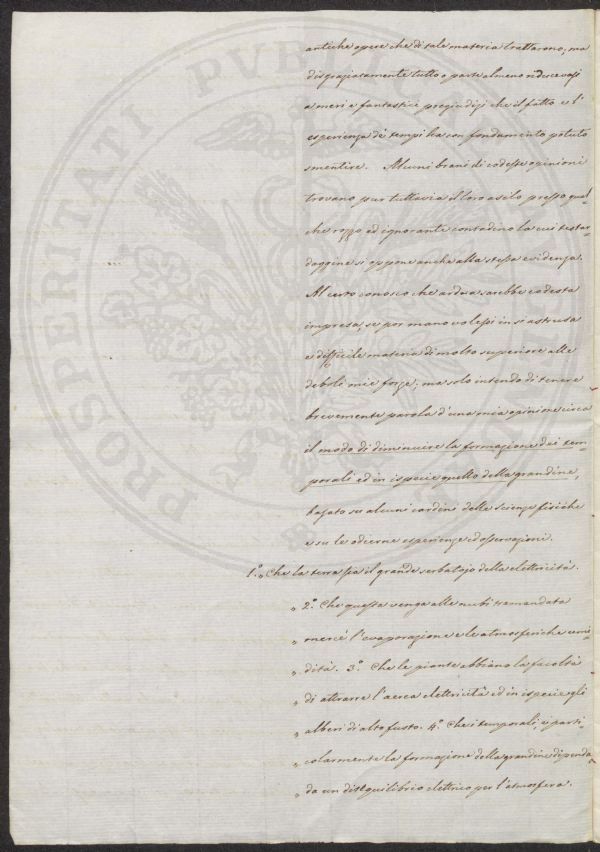 antiche opere che di tale materia trattarono, ma
disgraziatamente tutto o parte almeno riducevasi
a meri e fantastici pregiudizi che il fatto e l'
esperienza de' tempi ha con fondamento potuto
smentire. Alcuni brani di codesse opinioni
trovano pur tuttavia il loro asilo presso qual
che rozzo ed ignorante contadino la cui testar
daggine si oppone anche alla stessa evidenza.
Al certo conosco che ardua sarebbe codesta
impresa, se por mano volessi in sì astrusa
e difficile materia di molto superiore alle
deboli mie forze; ma solo intendo di tenere
brevemente parola d'una mia opinione circa
il modo di diminuire la formazione dei tem-
porali ed in ispecie quello della grandine,
basato su alcuni cardini delle scienze fisiche
e su le odierne esperienze ed osservazioni.
1.º „ Che la terra sia il grande serbatojo della elettricità.
„ 2.º Che questa venga alle nubi tramandata
„ mercè l'evaporazione e le atmosferiche umi
„ dità. 3.º Che le piante abbiano la facoltà
„ di attrarre l'aerea elettricità ed in ispecie gli
„ alberi di alto fusto. 4.º Che i temporali, e parti-
„ colarmente la formazione della grandine dipenda
„ da un disequilibrio elettrico per l'atmosfera.
PROSPERITATI PVBLICAE